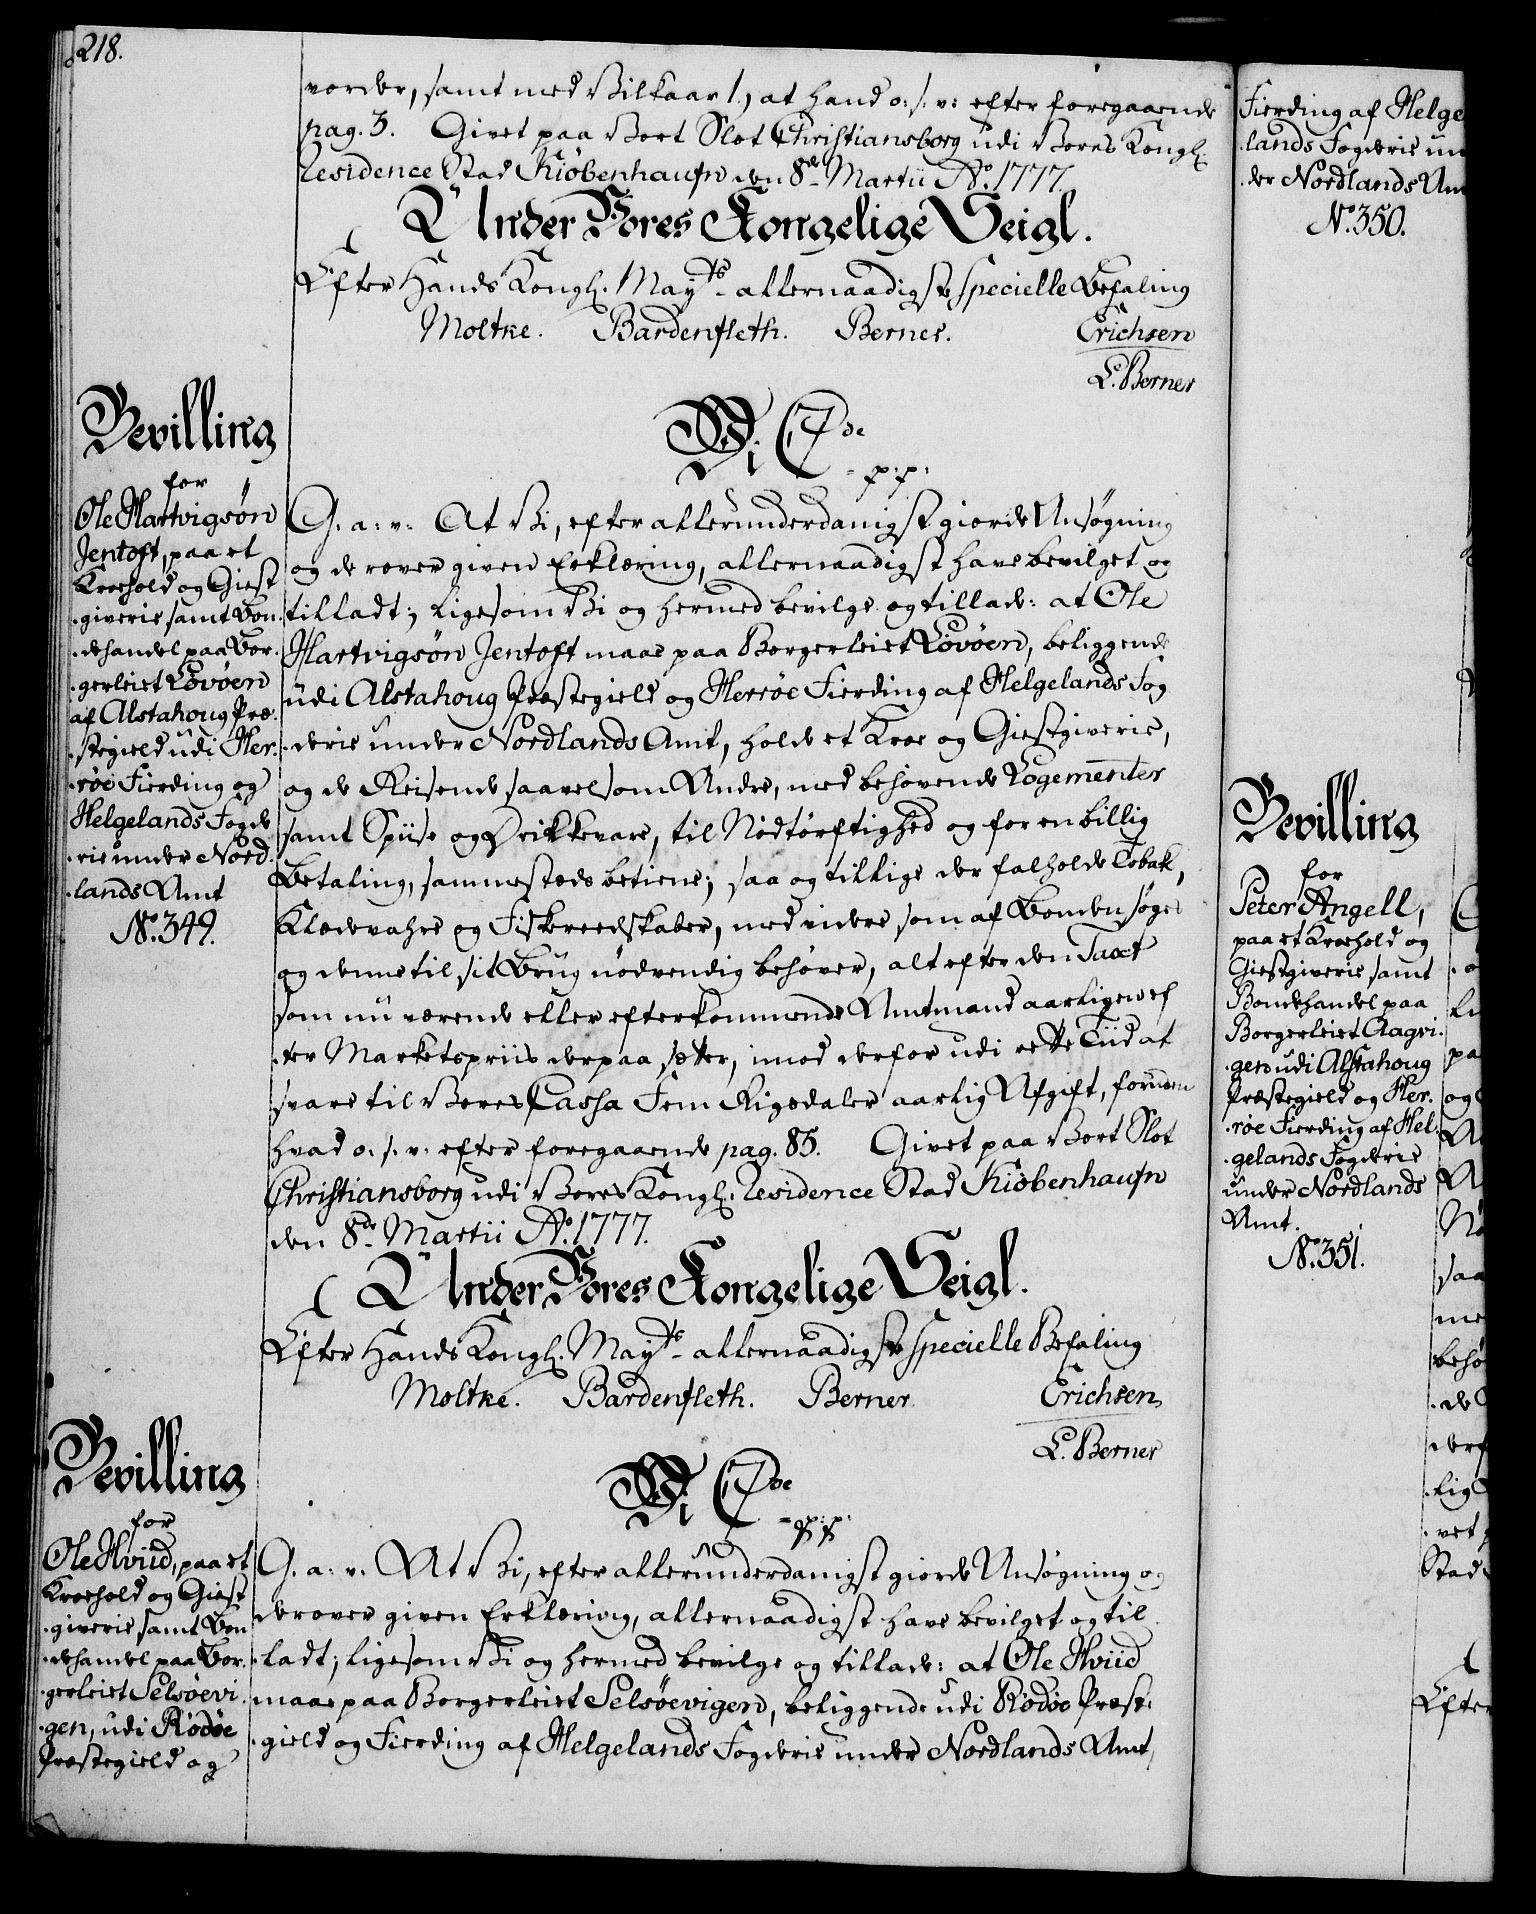 218.
vorder, samt med Vilkaar /., at hand o: s: v: efter foregaaende
pag. 3. Givet paa Vort Slot Christiansborg udi Vores Kongl.
Residence Stad Kiöbenhaufn den 8de Martii Ao. 1777.
Under Vores Kongelige Seigl.
Efter Hands Kongl. Mayts allernaadigste specielle Befaling
Moltke. Bardenfleth. Berner. Erichsen
L. Berner
Bevilling
for
Ole Hartvigsøn
Jentoft, paa et
Kroehold og Giest
giverie samt Bon
dehandel paa Bor
gerleiet Lövöen
af Alstahoug Præ
stegield udi Her
röe Fierding og
Helgelands Fogde
rie under Nord
lands Amt
No. 349.
Vi C 7de
p: p:
G. a: v: At Vi, efter allerunderdanigst giorde Ansøgning
og derover given Erklæring, allernaadigst have bevilget og
tilladt; ligesom Vi og hermed bevilge og tillade: at Ole
Hartvigsøn Jentoft maae paa Borgerleiet Lövöen, beliggende
udi Alstahoug Præstegield og Herröe Fierding af Helgelands Fog
derie under Nordlands Amt, holde et Kroe og Giestgiverie,
og de Reisende saavelsom Andre, med behøvende Logementer
samt Spiise og Drikkevare, til Nödtörftighed og for en billig
Betaling, sammesteds betiene; saa og tillige der falholde Tobak,
Klædevahre og Fiskereedskaber, med videre som af Bonden søges
og denne til sit Brug nødvendig behøver, alt efter den Taxt
som nu værende eller efterkommende Amtmand aarligen ef
ter Marketspriis derpaa sætter, imod derfor udi rette Tiid at
svare til Vores Cassa Fem Rigsdaler aarlig Afgift, foruden
hvad o. s. v. efter foregaaende pag. 85. Givet paa Vort Slot
Christiansborg udi Vores Kongl. Residence Stad Kiöbenhaufn
den 8de Martii Ao. 1777.
Under Vores Kongelige Seigl.
Efter Hands Kongl. Mayts allernaadigste specielle Befaling
Moltke. Bardenfleth. Berner Erichsen
L. Berner
Bevilling
for
Ole Hviid, paa et
Kroehold og Giest
giverie samt Bon
dehandel paa Bor
gerleiet Selsöevi
gen, udi Rödöe
Præstegield og
Vi C 7de
p: p:
G. a: v. At Vi, efter allerunderdanigst giorde Ansøgning og
derover given Erklæring, allernaadigst have bevilget og til
ladt; ligesom Vi og hermed bevilge og tillade: at Ole Hviid
maae paa Borgerleiet Selsöevigen, beliggende udi Rödöe Præste
gield og Fierding af Helgelands Fogderie under Nordlands Amt,
Fierding af Helge
lands Fogderie un
der Nordlands Am
No. 350.
Bevilling
for
Peter Angell,
paa et Kroehold og
Giestgiverie samt
Bondehandel paa
Borgerleiet Aagvi
gen udi Alstahoug
Præstegield og Her
röe Fierding af Hel
gelands Fogderie
under Nordlands
Amt.
No. 351.
pa
og
Nö
saa
me
behø
de
derf
lig
vet
Stad
Efter